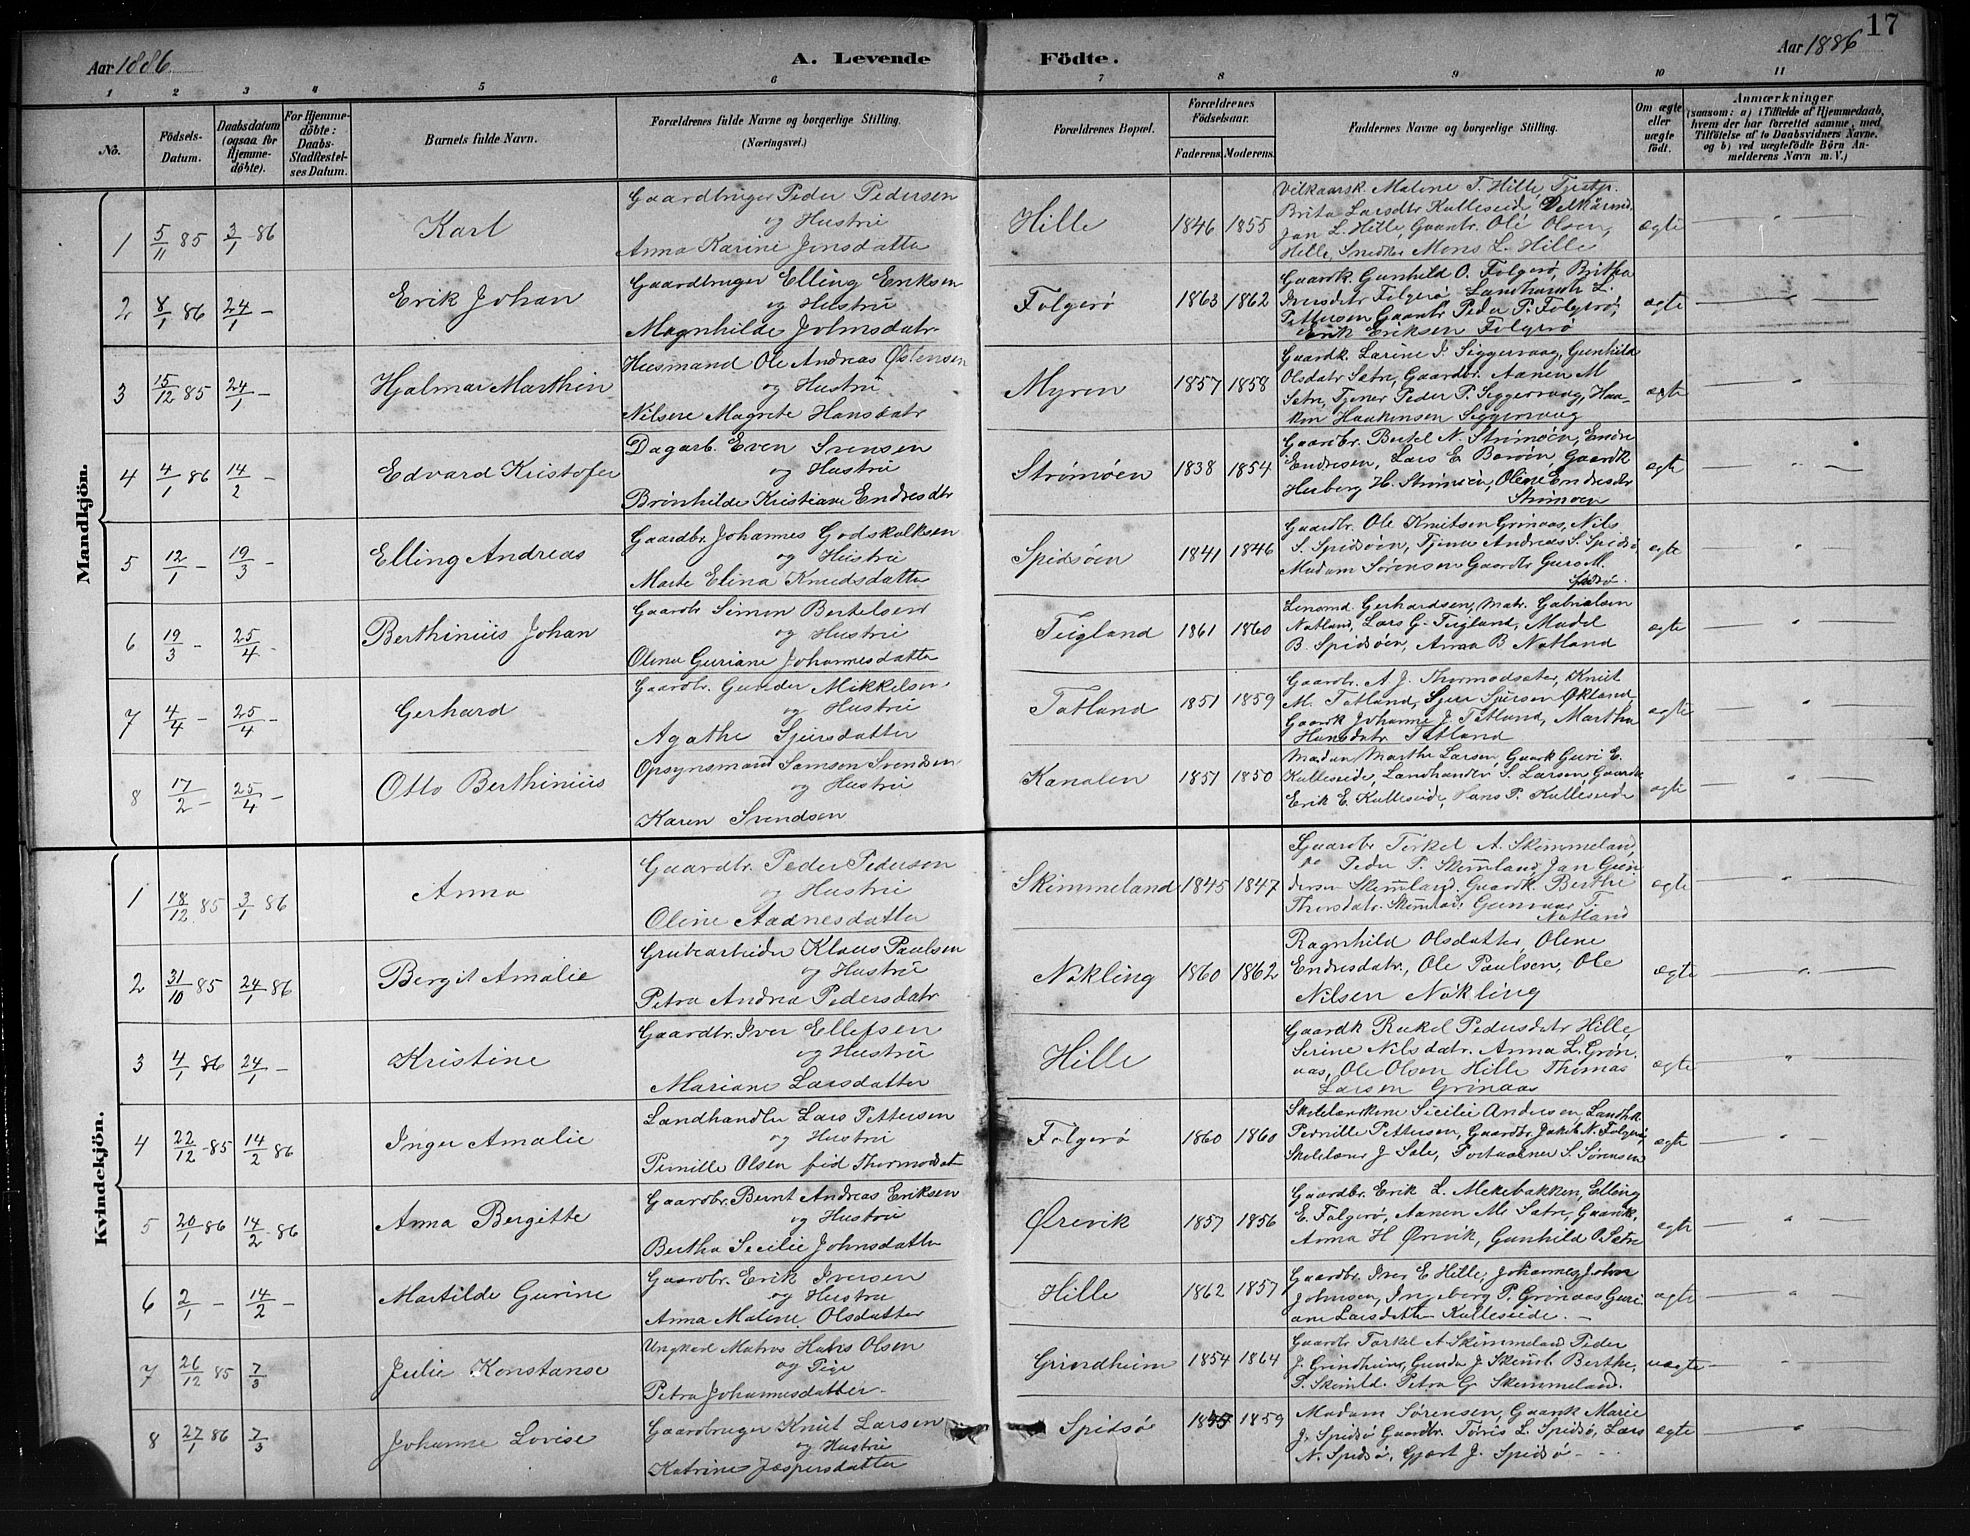 17
Aar 1886
A. Levende Födte.
Aar 1886
1 2 3 4 5 6 7 8 9 10 11
No.
Födsels-Datum.
Daabsdatum (ogsaa for Hjemmedöbte).
For Hjemmedöbte: Daabs-Stadfæstelses Datum.
Barnets fulde Navn.
Forældrenes fulde Navne og borgerlige Stilling. (Næringsvei.)
Forældrenes Bopæl.
Forældrenes Födselsaar.
Faderens. Moderens.
Faddernes Navne og borgerlige Stilling.
Om ægte eller uægte födt.
Anmærkninger
(saasom: a) i Tilfælde af Hjemmedaab, hvem der har forrettet samme, med Tilföielse af to Daabsvidners Navne, og b) ved uægtefödte Börn Anmelderens Navn m. V.)
Mandkjön.
1 5/11 85 3/1 86 Karl
Gaardbruger Peder Pedersen
og Hustru
Anna Karine Jensdatter
Hille 1846 1855
Vilkaarsk. Malene T. Hille,
Brita Larsdtr Kulleseide,
Jan L. Hille, Gaardbr. Ole Olsen,
Hille, Snedker Mons L. Hille
ægte
2 8/1 86 24/1 - Erik Johan
Gaardbruger Elling Eriksen
og Hustru
Magnhilde Johnsdatr
Folgerö 1863 1862
Gaardk. Gunhild O. Folgerö, Britha
Iversdatr Folgerö Landhandl L.
Pettersen Gaardbr Peder P. Folgerö,
Erik Eriksen Folgerö
ægte
3 15/12 85 24/1 - Hjalmar Marthin
Husmand Ole Andreas Östensen
og Hustru
Nilsine Magrete Hansdatr
Myren 1857 1858
Gaardk. Larine J. Siggervaag, Gunhild
Olsdatr Sætre, Gaardbr. Aanen M
Sætre, Tjener Peder P. Siggervaag, Haa-
kon Haakonsen Siggervaag
ægte
4 4/1 86 14/2 - Edvard Kristofer
Dagarb. Even Svensen
og Hustru
Brönhilde Kristiane Endresdtr
Strömöen 1838 1854
Gaardbr. Bertel N. Strömöen, Endre
Endresen, Lars E. Boröen, Gaardk
Herborg H. Strömöen, Olene Endresdtr
Strömöen
ægte
5 12/1 - 19/3 - Elling Andreas
Gaardbr. Johannes Godskalksen
og Hustru
Marte Elina Knudsdatter
Spidsöen 1841 1846
Gaardbr. Ole Knutsen Grönaas, Nils
S. Spidsöen, Tjener Andreas S. Spidsö
Madam Sörensen Gaardbr Guro M.
Spidsö.
ægte
6 19/3 - 25/4 - Berthinius Johan
Gaardbr Simon Bertelsen
og Hustru
Olina Guriane Johannesdatter
Fugland 1861 1860
Lensmd. Gerhardsen, Matr. Gabrielsen
Natland, Lars G. Fugland, Madel
B. Spidsöen, Anna B Natland
ægte
7 4/4 - 25/4 - Gerhard
Gaardbr. Gunder Mikkelsen
og Hustru
Agathe Sjursdatter
Tatland 1851 1859
Gaardbr. A J. Thormodsæter, Knut
M. Tatland, Sjur Sjursen Ökland,
Gaardk Johanne J. Tatland, Martha
Hansdatr Tatland
ægte
8 17/2 - 25/4 - Otto Berthinius
Opsynsmand Samson Svendsen
og Hustru
Karen Svendsen
Kanalen 1851 1850
Madam Marthe Larsen, Gaardk Guri E.
Kulleseide, Landhandler S. Larsen, Gaardbr
Erik E. Kulleseide, Hans P. Kulleseide
ægte
Kvindekjön.
1 18/12 85 3/1 86 Anna
Gaardbr. Peder Pedersen
og Hustru
Oline Aadnesdatter
Skimmeland 1845 1847
Gaardbr Torkel A. Skimmeland,
Peder P. Skimland, Jan Gun
dersen Skimland. Gaardk Berthe
Thorsdatr. Skimland Gunvor T.
Natland
ægte
2 31/10 85 24/1 86 Bergit Amalie
Grubearbeider Klaus Paulsen
og Hustru
Petra Andrea Pedersdatr
Nökling 1860 1862
Ragnhild Olsdatter, Olene
Endresdatr., Ole Paulsen, Ole
Nilsen Nökling
ægte
3 4/1 86 24/1 - Kristine
Gaardbr. Iver Ellefsen
og Hustru
Mariane Larsdatter
Hille
Gaardk Rakel Pedersdatr Hille,
Serine Nilsdatr. Anna L. Grön
aas, Ole Olsen Hille Thomas
Larsen Grönaas
ægte
4 22/12 - 85 14/2 86 Inger Amalie
Landhandler Lars Pettersen
og Hustru
Pernille Olsen föd Thormodsæt
Folgerö 1860 1860
Skolelærerinne Sicilie Andersen, Landhk
Pernille Pettersen, Gaardbr Jakob N. Folgerö,
Skolelærer J Sele, S. Sörensen
ægte
5 20/1 86 14/2 - 86 Anna Bergitte
Gaardbr. Bernt Andreas Eriksen
og Hustru
Bertha Secilie Johnsdatter
Örevik 1857 1856
Gaardbr. Erik L. Mekebakken, Elling
E. Folgerö, Aanen M. Sætre, Gaardk.
Anna H Örevik, Gunhild O. Sætre
ægte
6 2/1 - 14/2 - Martilde Gurine
Gaardbr. Erik Iversen
og Hustru
Anna Malene Olsdatter
Hille 1862 1857
Gaardbr. Iver E Hille, Johannes John
Johnsen, Ingeborg P. Grönaas Guri-
ane Larsdatter Kulleseide. -
ægte
7 26/12 85 7/3 Julie Konstanse
Ungkarl Matros Hans Olsen
og Pige
Petra Johannesdatter
Grindheim 1854 1864
Gaardbr Torkel A Skimmeland Peder
J. Grindheim, Gunda J. Skimld. Berthe,
P. Skimld. Petra G. Skimmeland.
uægte
8 27/1 86 7/3 Johanne Lovise
Gaardbruger Knut Larsen
og Hustru
Katrine Jaspersdatter
Spidsö 1859
Madam Sörensen, Gaardk Marie
J. Spidsö Gaardbr. Törris L. Spidsö, Lars
N. Spidsö, Gjært J. Spidsö -
ægte